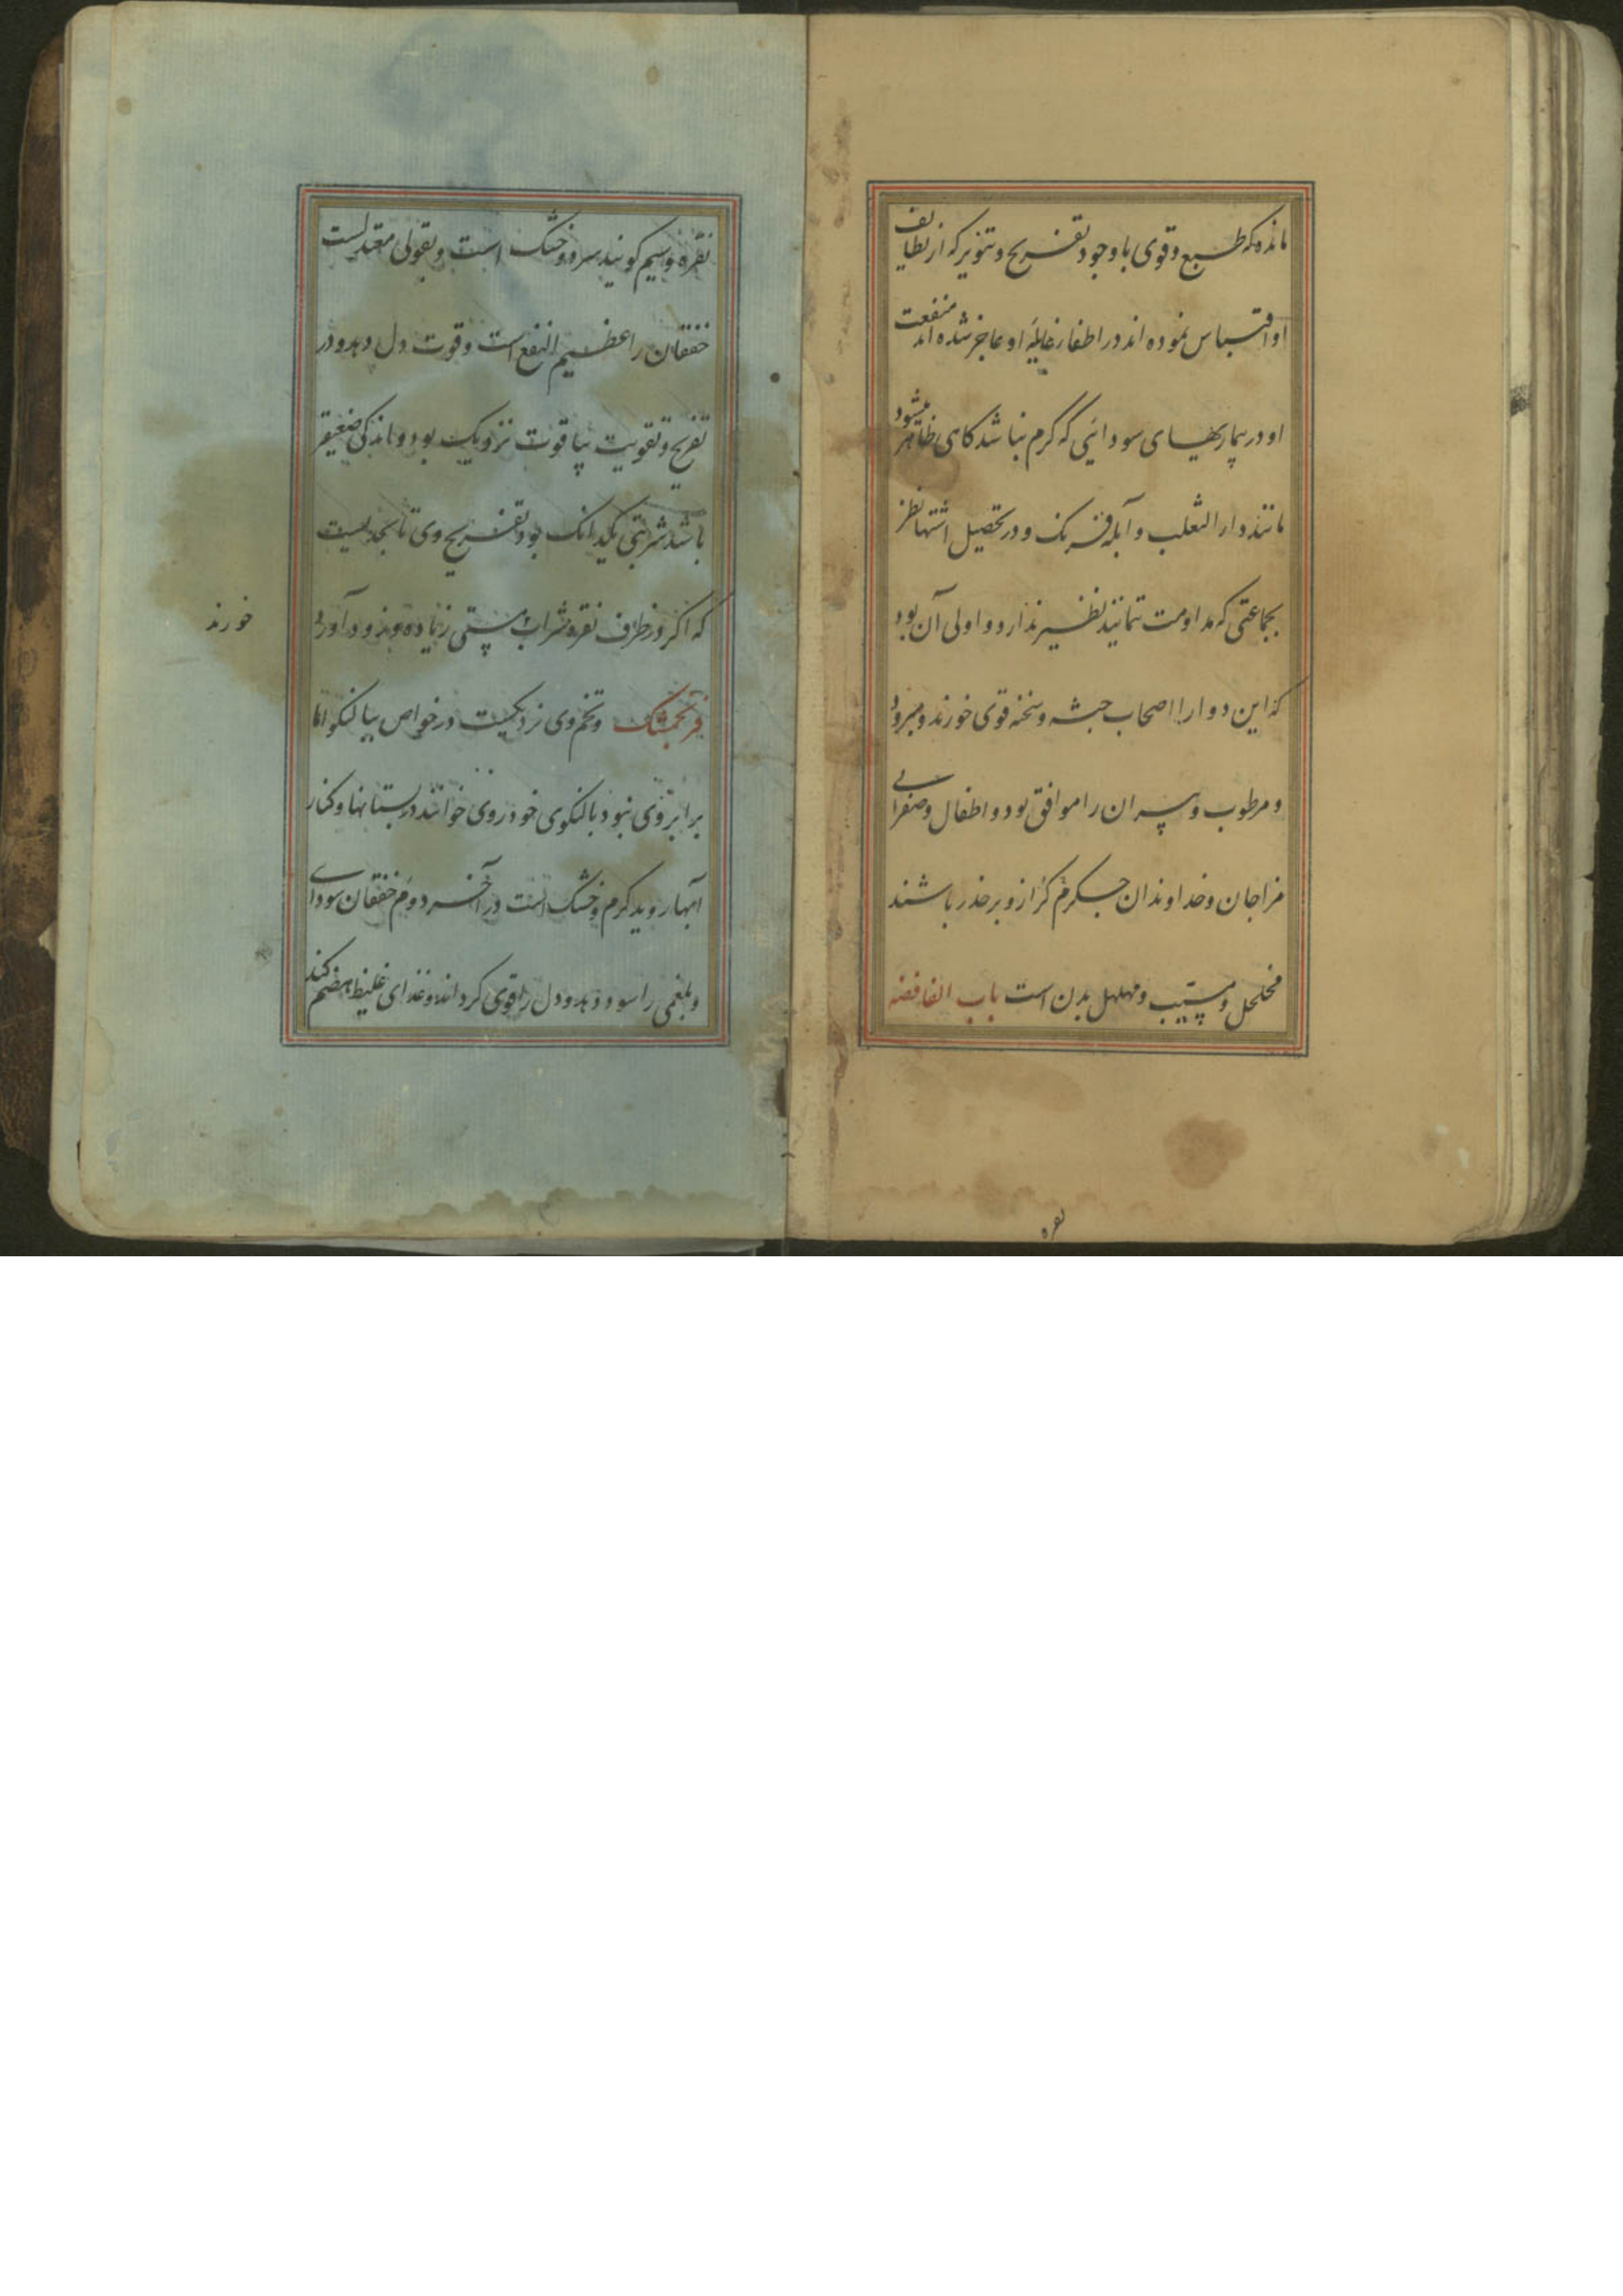 مانده که طبع و قوی با وجود تفریح و تنویر که از لطایف
او اقتباس نموده اند در اطفاء غایله او عاجز شده اند منفعت
او در بیماریهای سودائی که گرم نباشد کاهی ظاهر میشود
مانند دار الثعلب و آبله فرنک و در تحصیل اشتها نظر
بجماعتی که مداومت نمانید نظیر ندارد و اولی آن بود
که این دوا را اصحاب جثه و سخنه قوی خورند و مبرود
و مرطوب و پیران را موافق بود و اطفال و صفرایی
مزاجان و خداوندان جکر گرم از و بر حذر باشند
مخلخل و مسیب و مهلهل بدن است باب الفا فضه
نقره
نقره و سیم کویند سرد و خشک است و بقولی معتدلست
خفقان را عظیم النفع است و قوت دل دهد و در
تفریح و تقویت بیاقوت نزدیک بود و اندکی ضعیفتر
باشد شربتی یکدانک بود تفریح وی تا بحدیست
که اکر در ظرف نقره شراب مستی زیاده و زود آورد
خورند
فرنجمشک و تخم وی نزدیکیست در خواص ببالنکو اما
برابر وی نبود بالنکوی خود روی خوانند در بستانها و کنار
آبها روید کرم و خشک است در آخر دوم خفقان سودایی
و بلغمی را سود دهد و دل را قوی کرداند و غذای غلیظ هضم کند